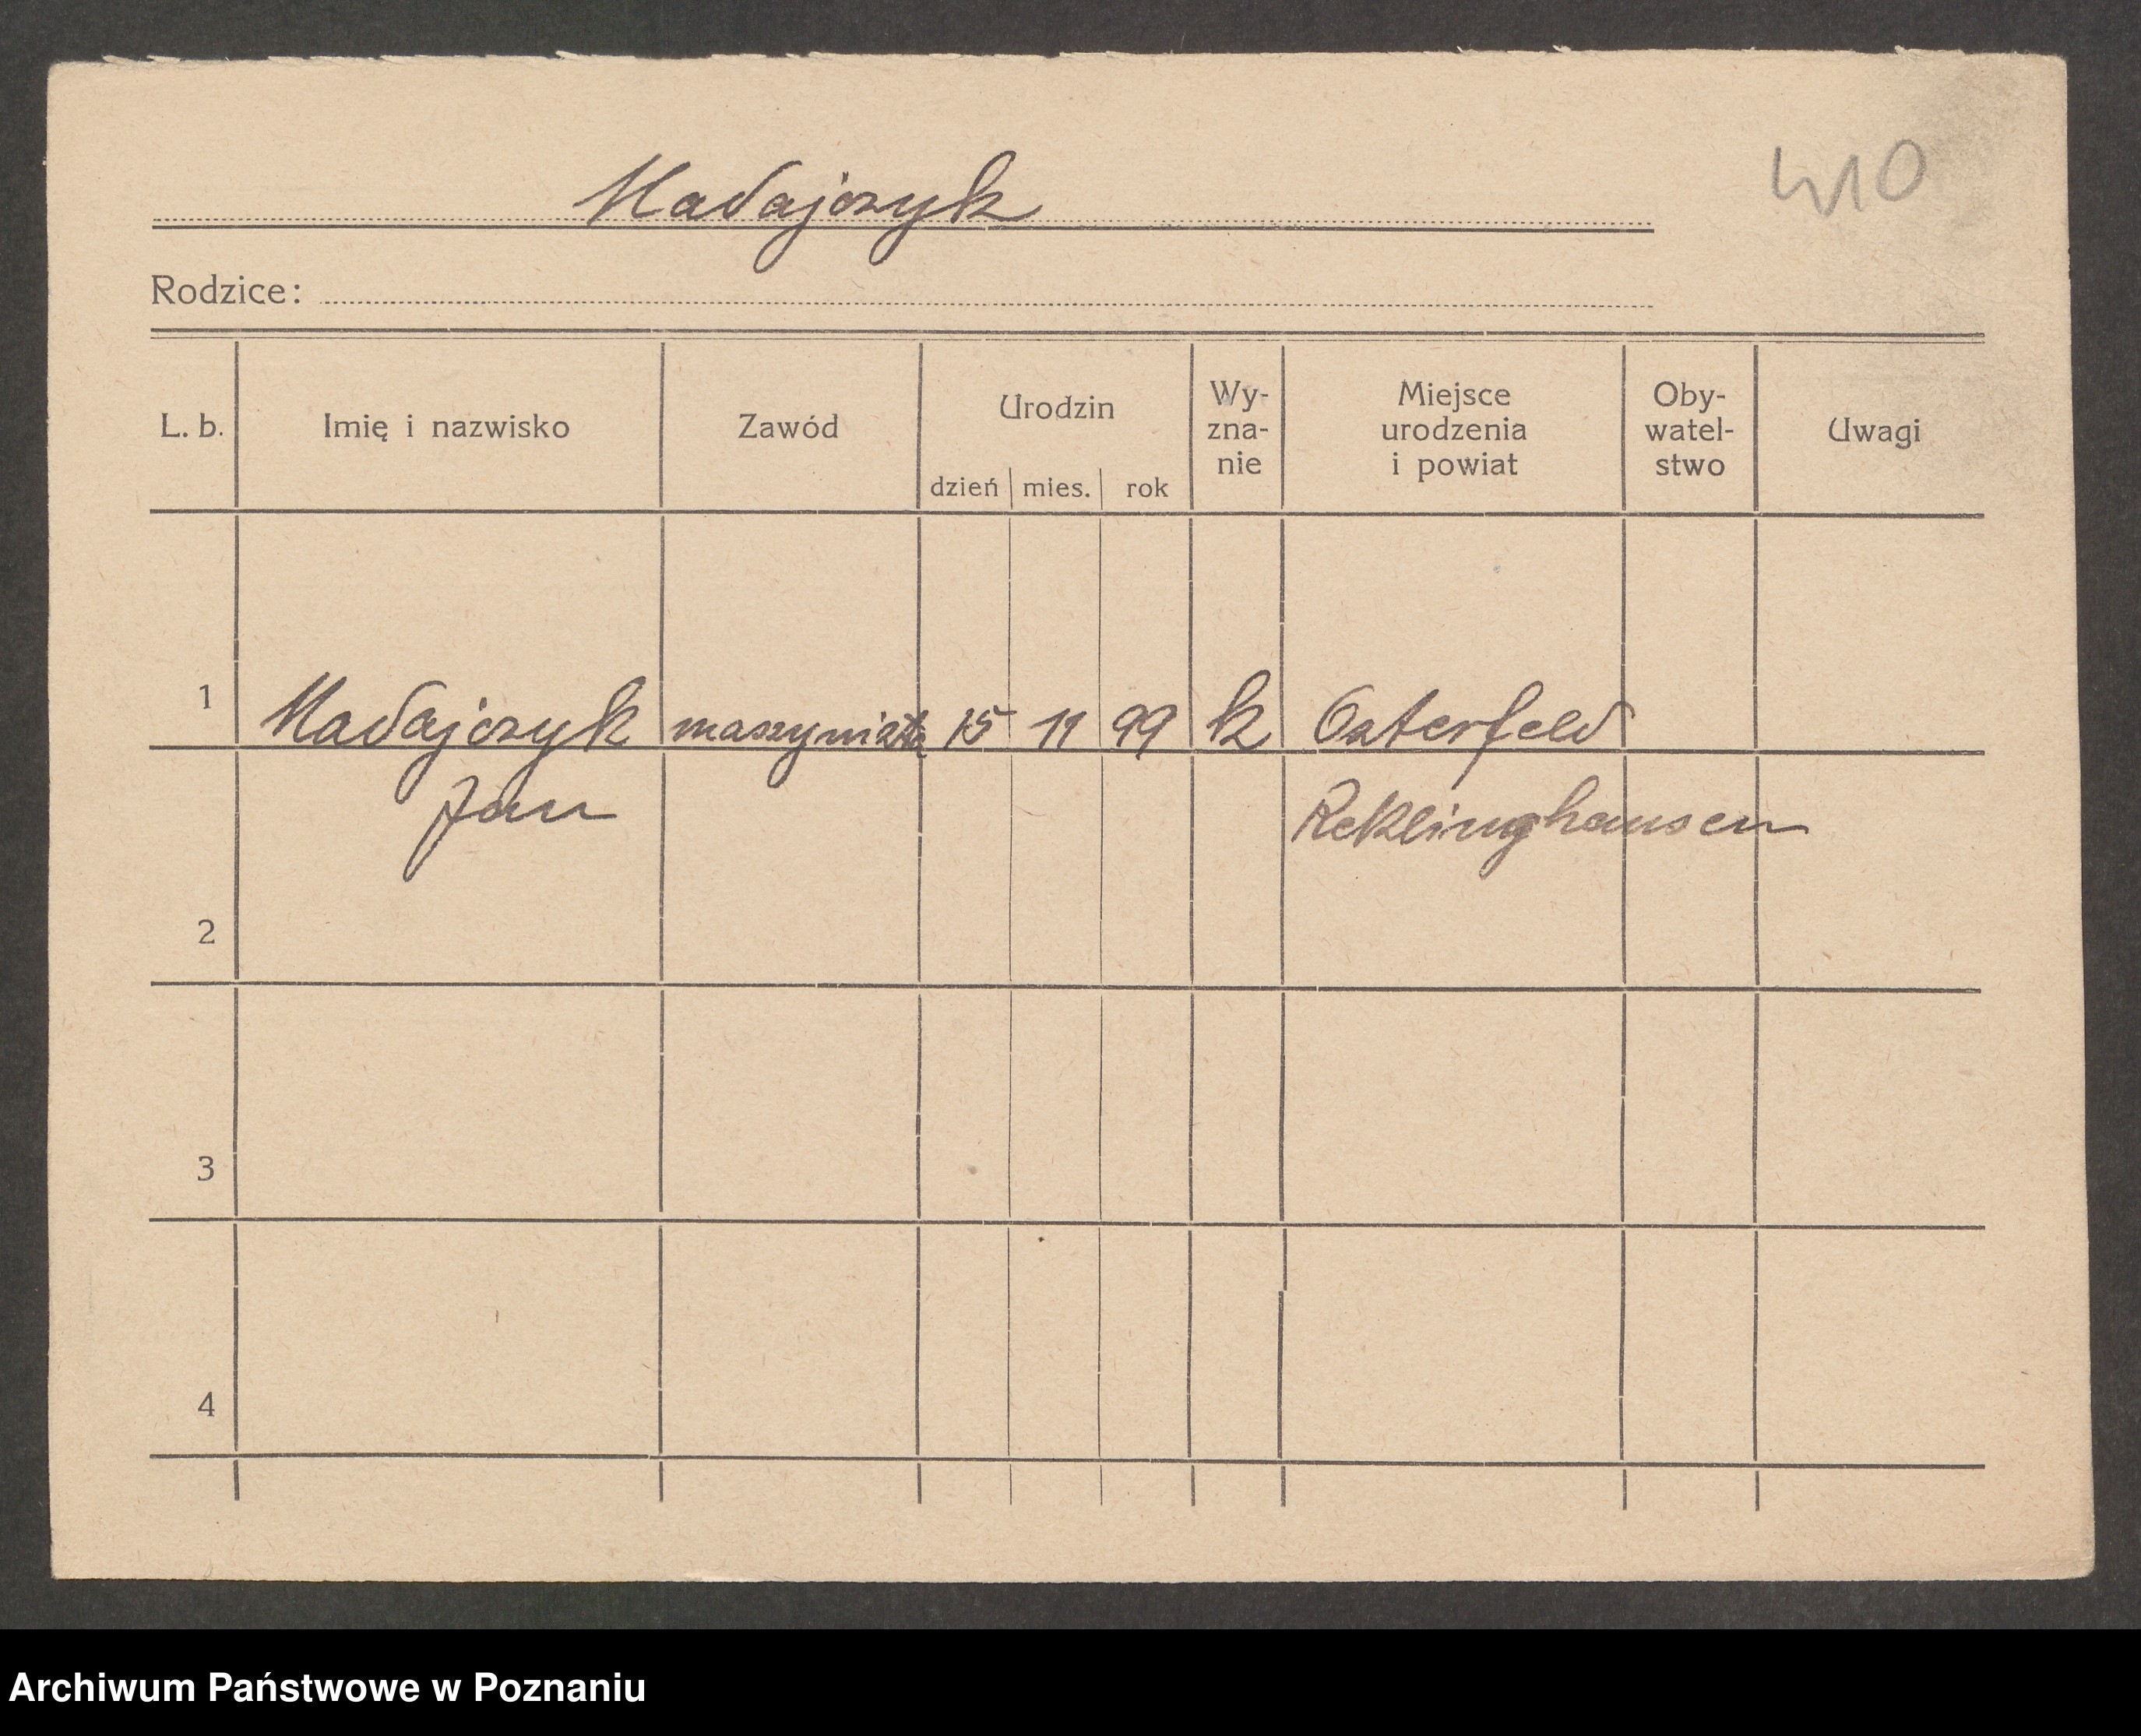 Madajczyk
410
Rodzice:
L. b.
Imię i nazwisko
Zawód
Urodzin
dzień mies. rok
Wy-
zna-
nie
Miejsce
urodzenia
i powiat
Oby-
watel-
stwo
Uwagi
1 Madajczyk maszynista 15 11 99 k Osterfeld
Jan Reklinghausen
2
3
4
Archiwum Państwowe w Poznaniu